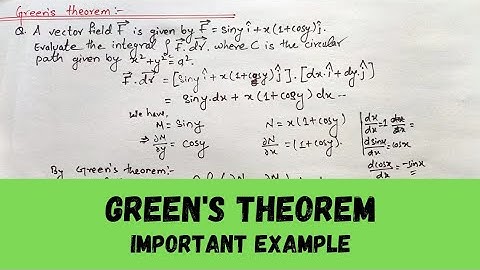 Green's theorem:-
Q. A vector field F⃗ is given by F⃗ = siny î + x(1+cosy) ĵ.
Evaluate the integral ∮ F⃗.dr⃗. where C is the circular
path given by x²+y²=a².
F⃗.dr⃗ = [siny î + x(1+cosy) ĵ].[dx.î+dy.ĵ]
= siny.dx + x(1+cosy) dx --
We have,
M = siny N = x(1+cosy)
⇒ ∂M/∂y = cosy ∂N/∂x = (1+cosy).
dx/dx = 1
dsinx/dx = cosx
dcosx/dx = -sinx
By Green's theorem:-
GREEN'S THEOREM
IMPORTANT EXAMPLE